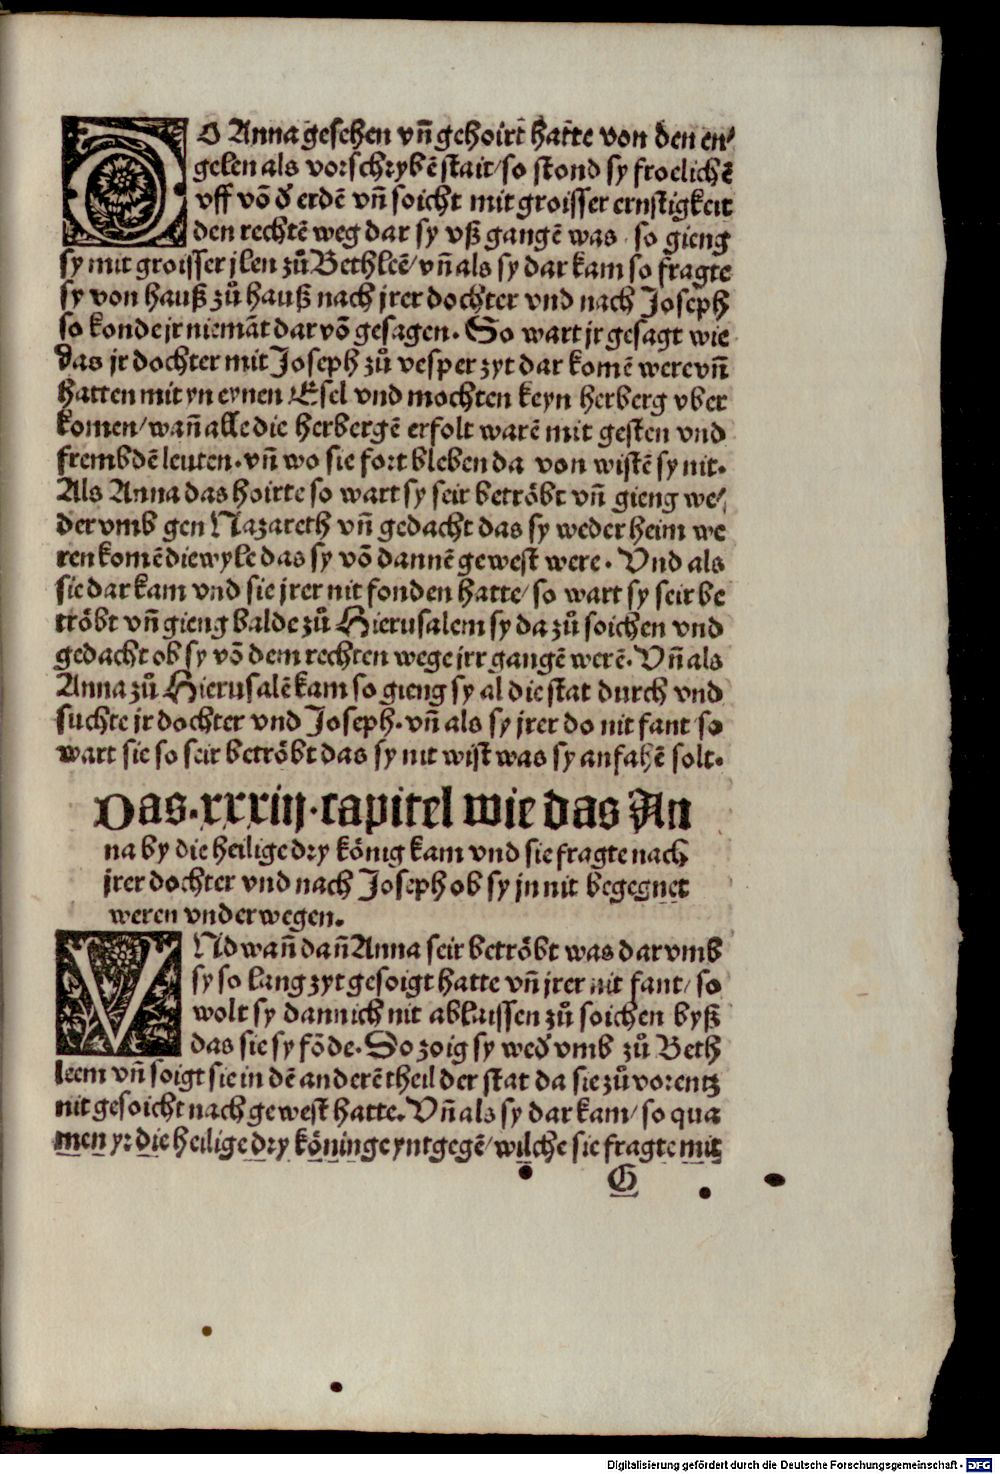 DO Anna gesehen vñ gehoirt hatte von den en⸗
gelen als vorschrybē stait/ so stond sy froelichē
vff vō d' erdē vñ soicht mit groisser ernstigkeit
den rechtē weg dar sy vß gangē was. so gieng
sy mit groisser jlen zů Bethleē/ vñ als sy dar kam so fragte
sy von hauß zů hauß nach jrer dochter vnd nach Joseph
so konde jr niemāt dar vō gesagen. So wart jr gesagt wie
das jr dochter mit Joseph zů vesper zyt dar komē were vñ
hatten mit yn eynen Esel vnd mochten keyn herberg vber
komen/ wañ alle die herbergē erfolt warē mit gesten vnd
frembdē leuten. vñ wo sie fort bleben da von wistē sy nit.
Als Anna das hoirte so wart sy seir betröbt vñ gieng we⸗
der vmb gen Nazareth vñ gedacht das sy weder heim we
ren komē diewyle das sy vō dannē gewest were. Vnd als
sie dar kam vnd sie jrer nit fonden hatte/ so wart sy seir be
tröbt vñ gieng balde zů Hierusalem sy da zů soichen vnd
gedacht ob sy vō dem rechten wege jrr gangē werē. Vñ als
Anna zů Hierusalē kam so gieng sy al die stat durch vnd
suchte jr dochter vnd Joseph. vñ als sy jrer do nit fant so
wart sie so seir betröbt das sy nit wist was sy anfahē solt.
Das .xxxiij. capitel wie das An
na by die heilige dry könig kam vnd sie fragte nach
jrer dochter vnd nach Joseph ob sy jn nit begegnet
weren vnderwegen.
VNd wañ dañ Anna seir betröbt was dar vmb
sy so lang zyt gesoigt hatte vñ jrer nit fant/ so
wolt sy dannich nit ablaissen zů soichen byß
das sie sy fōde. So zoig sy wed' vmb zů Beth
leem vñ soigt sie in dē anderē theil der stat da sie zů vorentz
nit gesoicht nach gewest hatte. Vñ als sy dar kam/ so qua
men yr die heilige dry köninge yntgegē/ wilche sie fragte mit
G
Digitalisierung gefördert durch die Deutsche Forschungsgemeinschaft - DFG